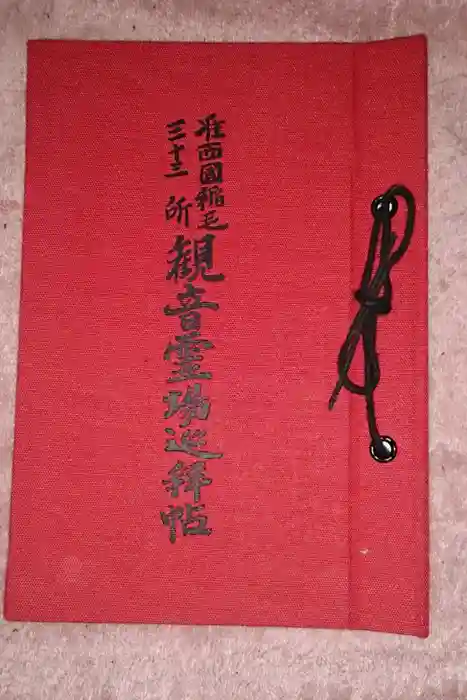 准西國稲毛
三十三所
観音霊場巡拝帖